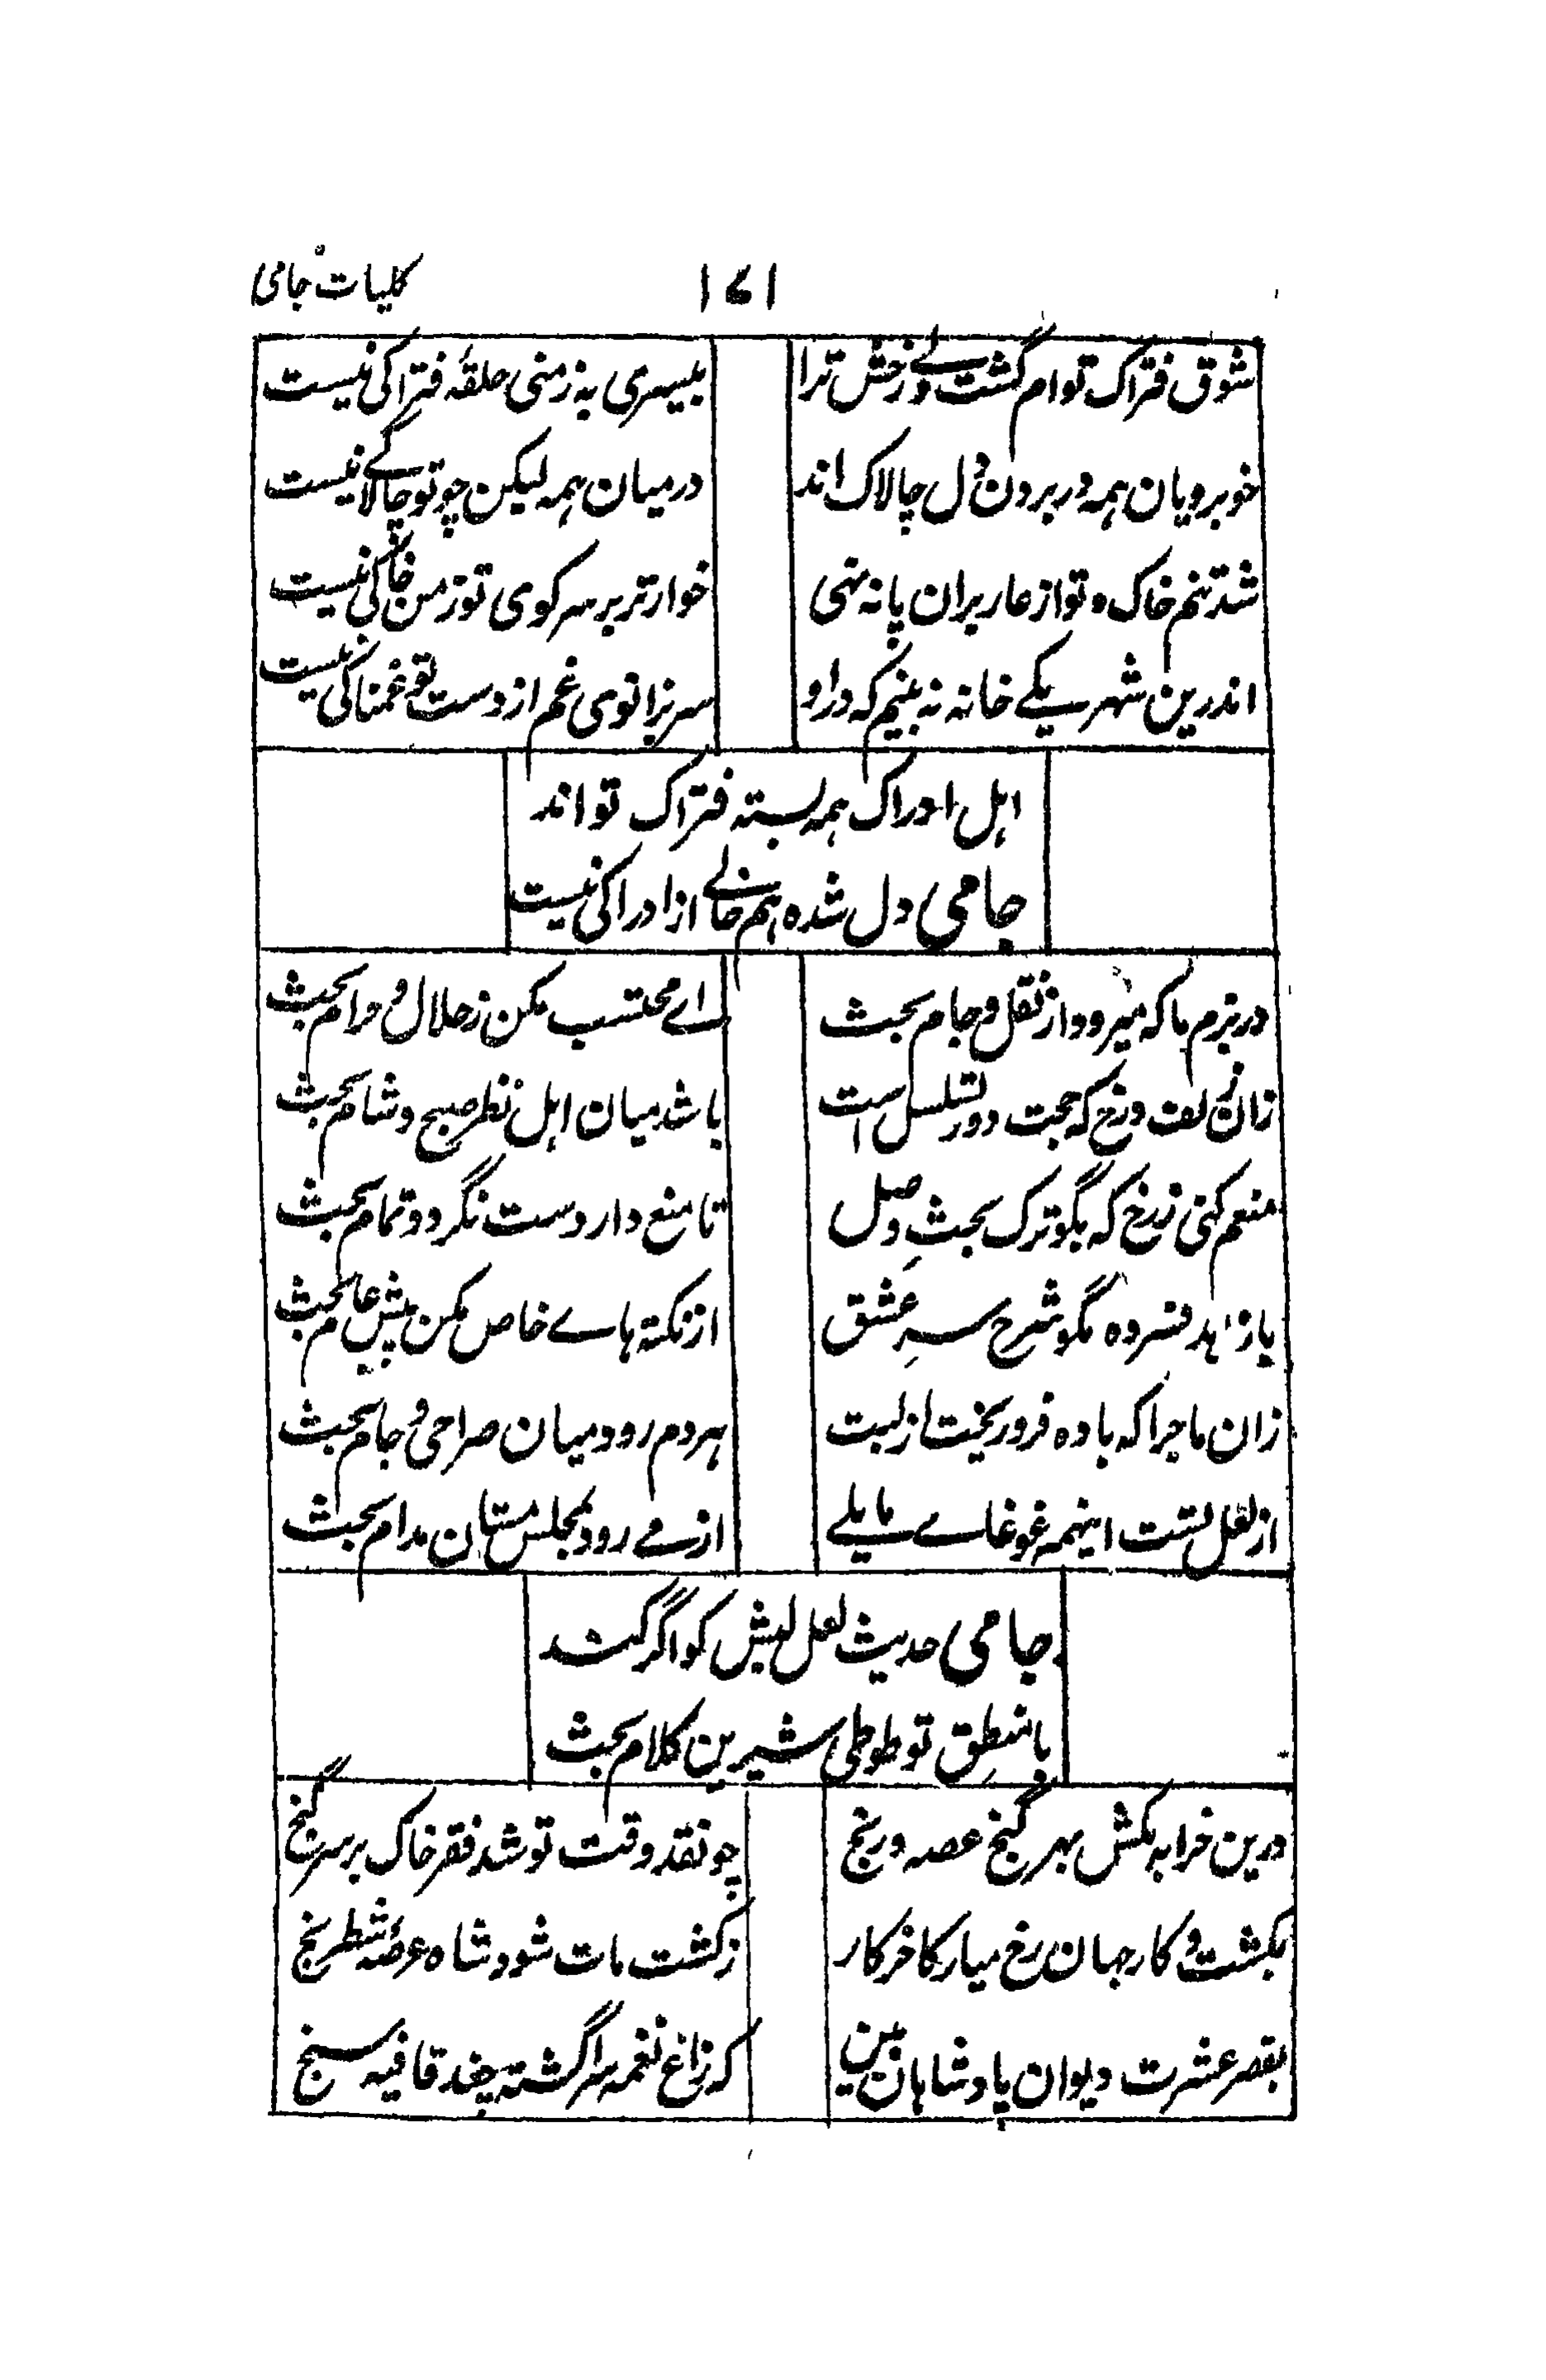 کلیات جامی
۱۷۱
شوق فتراک توام گشت ولے رخش ترا
بیسری به ز منی حلقهٔ فتراکی نیست
خوبرویان همه در بردن دل چالاک اند
در میان همه لیکن چو تو چالاکے نیست
شد تنم خاک و تو از عار بران پا نه نهی
خوارتر بر سر کوی تو ز من خاکی نیست
اندرین شهر یکے خانه نه بینم که دراو
سر بزانوی غم از دست تو غمناکی نیست
اہل ادراک ہمہ بستہ فتراک تو اند
جامی دل شده ہم خالے از ادراکی نیست
در بزم ما که میرود از نقل و جام بحث
اے محتسب مکن ز حلال و حرام بحث
زان زلف و رخ که حجت دور تسلسل است
باشد میان اہل نظر صبح و شام بحث
منعم کنی ز رخ که بگو ترک بحثِ وصل
تا منع دار دست نگردد تمام بحث
با زاہد فسرده مگو شرح سرِ عشق
از نکتہ ہاے خاص مکن پیش عام بحث
زان ماجرا که باده فرو ریخت از لبت
ہردم رود میان صراحی و جام بحث
از لعل تست اینہمہ غوغاے ما بلے
از مے رود بمجلس مستان مدام بحث
جامی حدیث لعل لبش کو اگر کند
با منطِق تو طوطی شیرین کلام بحث
درین خرابہ مکش بہر گنج غصہ و رنج
چو نقد وقت تو شد فقر خاک بر سر گنج
بکشت و کار جهان رخ میار کاخر کار
ز کشت مات شود شاه عرصهٔ شطرنج
بقصر عشرت دیوان پادشاہان بین
که زاغ نغمه سرا گشتہ چغد قافیہ سنج